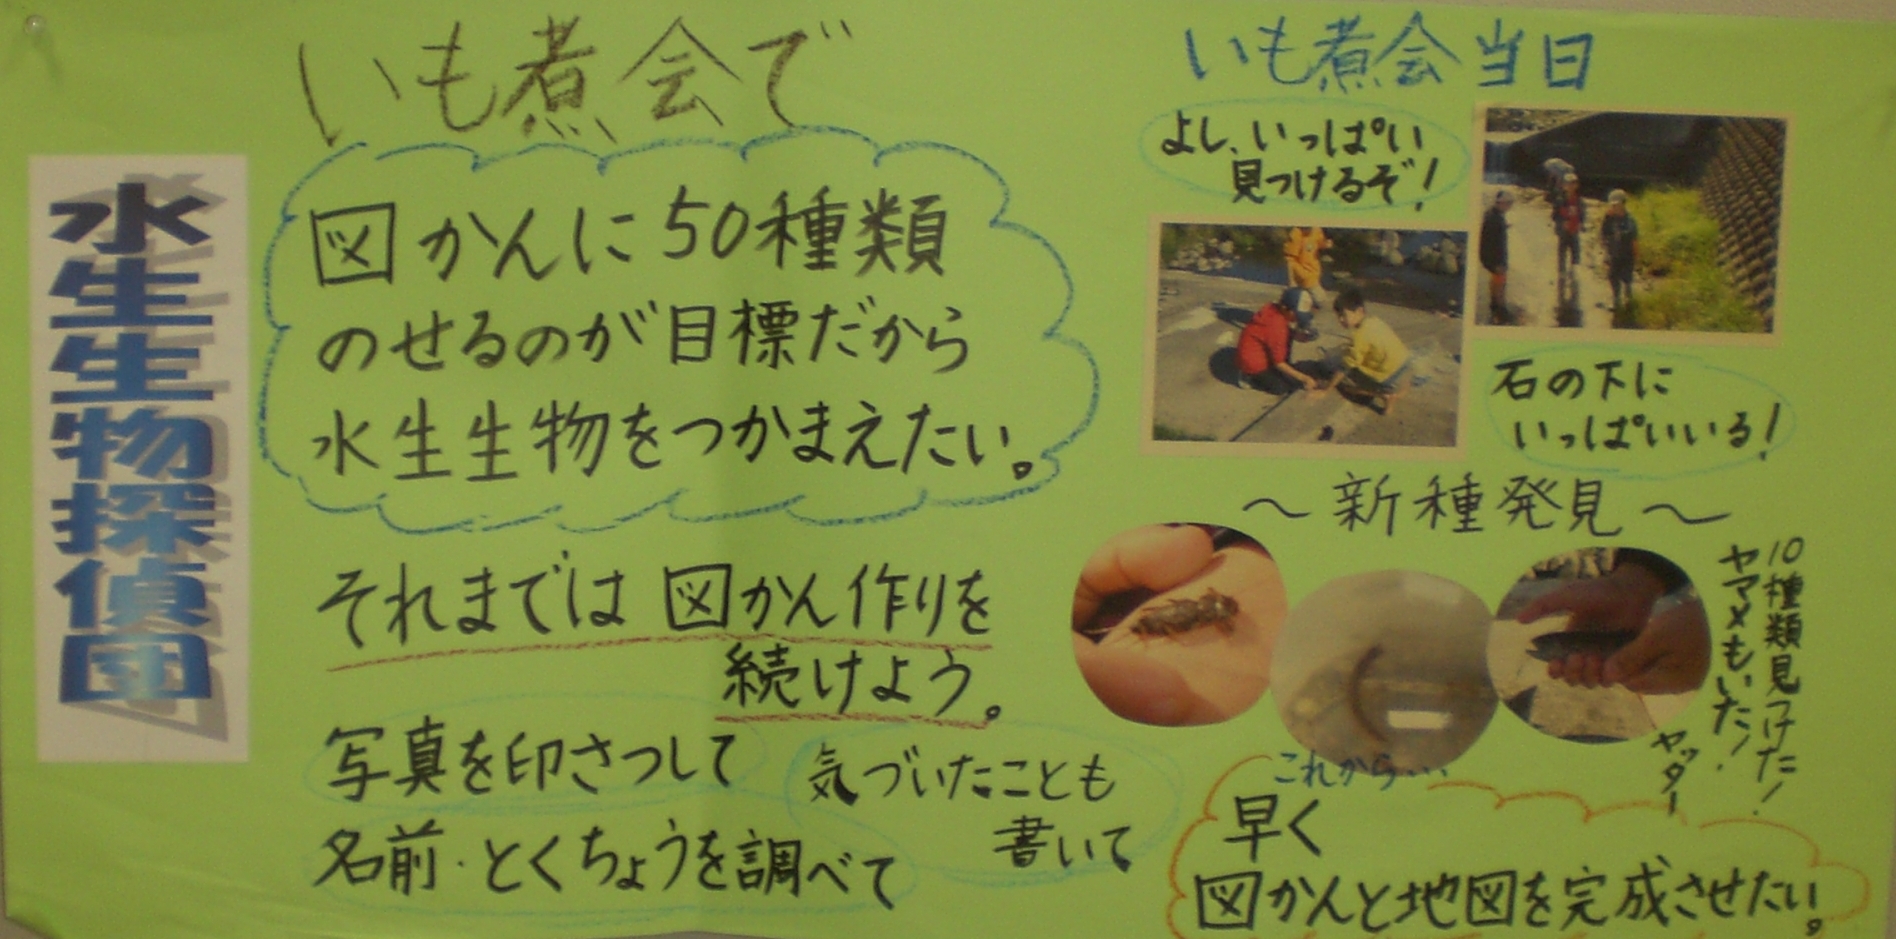 水生生物探偵団
いも煮会で
図かんに50種類
のせるのが目標だから
水生生物をつかまえたい。
それまでは図かん作りを
続けよう。
写真を印さつして
気づいたことも
書いて
名前・とくちょうを調べて
いも煮会当日
よし、いっぱい
見つけるぞ！
石の下に
いっぱいいる！
～新種発見～
10種類見つけた！
ヤマメもいた！
ヤッター
これから…
早く
図かんと地図を完成させたい。